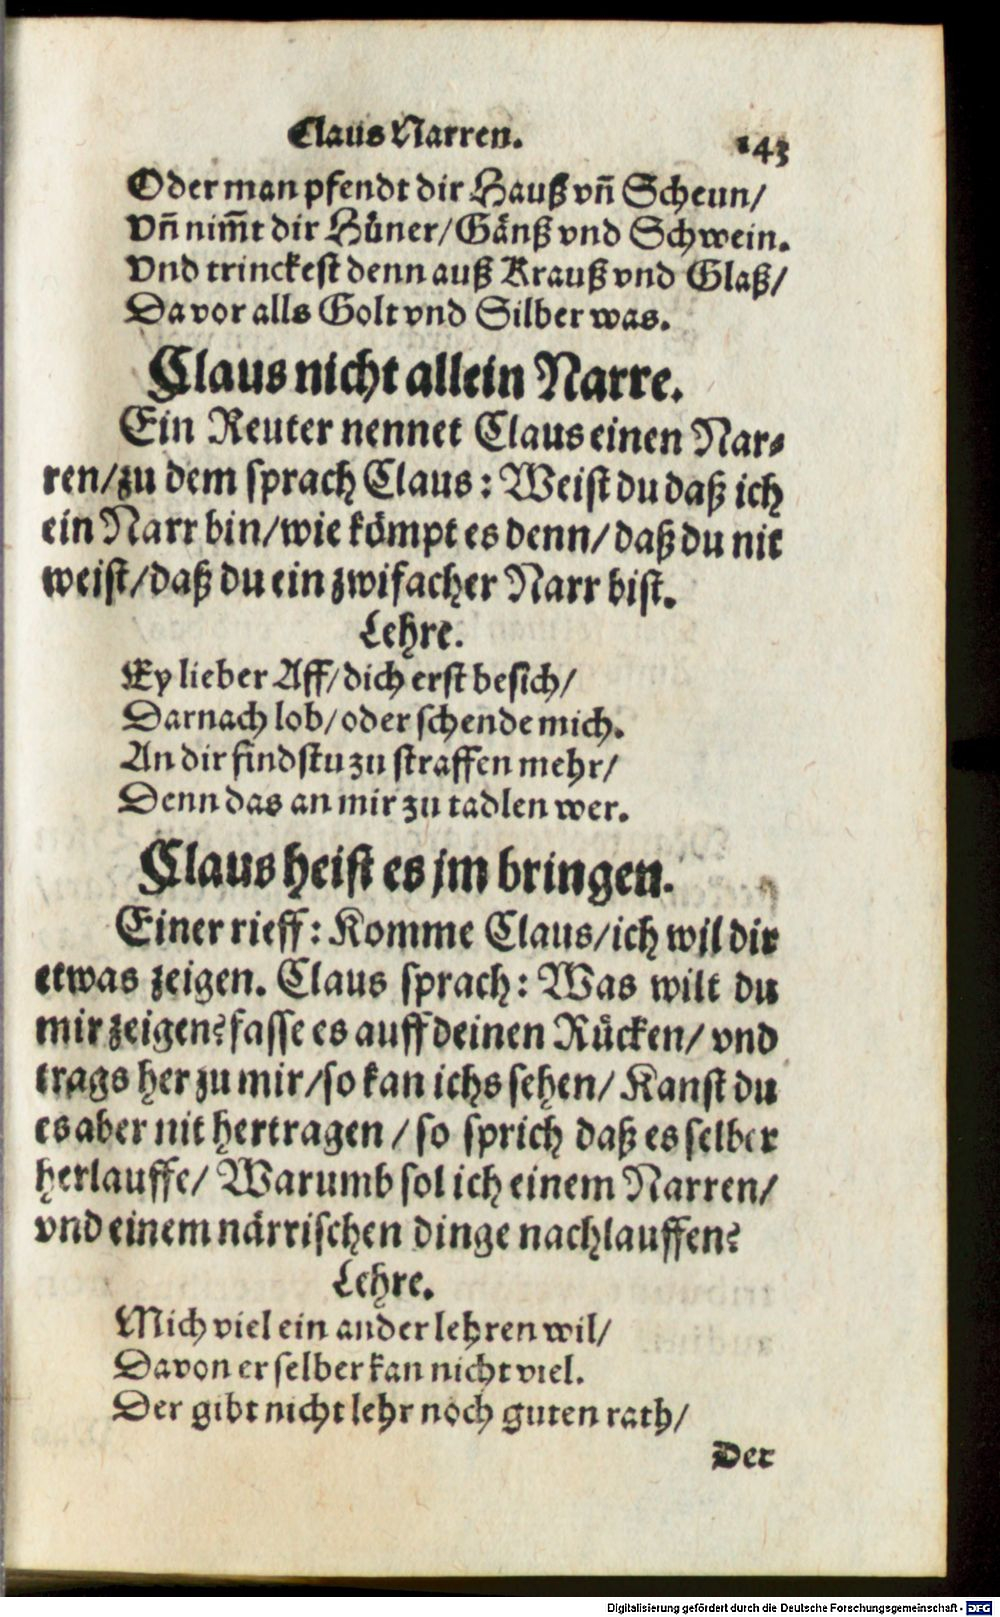 Claus Narren. 143
Oder man pfendt dir Hauß vn̄ Scheun/
Vn̄ nim̄t dir Hüner/Gänß vnd Schwein.
Vnd trinckest denn auß Krauß vnd Glaß/
Da vor alls Golt vnd Silber was.
Claus nicht allein Narre.
Ein Reuter nennet Claus einen Nar⸗
ren/zu dem sprach Claus: Weist du daß ich
ein Narr bin/wie kömpt es denn/daß du nit
weist/daß du ein zwifacher Narr bist.
Lehre.
Ey lieber Aff/dich erst besich/
Darnach lob/oder schende mich.
An dir findstu zu straffen mehr/
Denn das an mir zu tadlen wer.
Claus heist es jm bringen.
Einer rieff: Komme Claus/ich wil dir
etwas zeigen. Claus sprach: Was wilt du
mir zeigen? fasse es auff deinen Rücken/ vnd
trags her zu mir/so kan ichs sehen/ Kanst du
es aber nit hertragen/so sprich daß es selber
herlauffe/ Warumb sol ich einem Narren/
vnd einem närrischen dinge nachlauffen?
Lehre.
Mich viel ein ander lehren wil/
Davon er selber kan nicht viel.
Der gibt nicht lehr noch guten rath/
Der
Digitalisierung gefördert durch die Deutsche Forschungsgemeinschaft - DFG